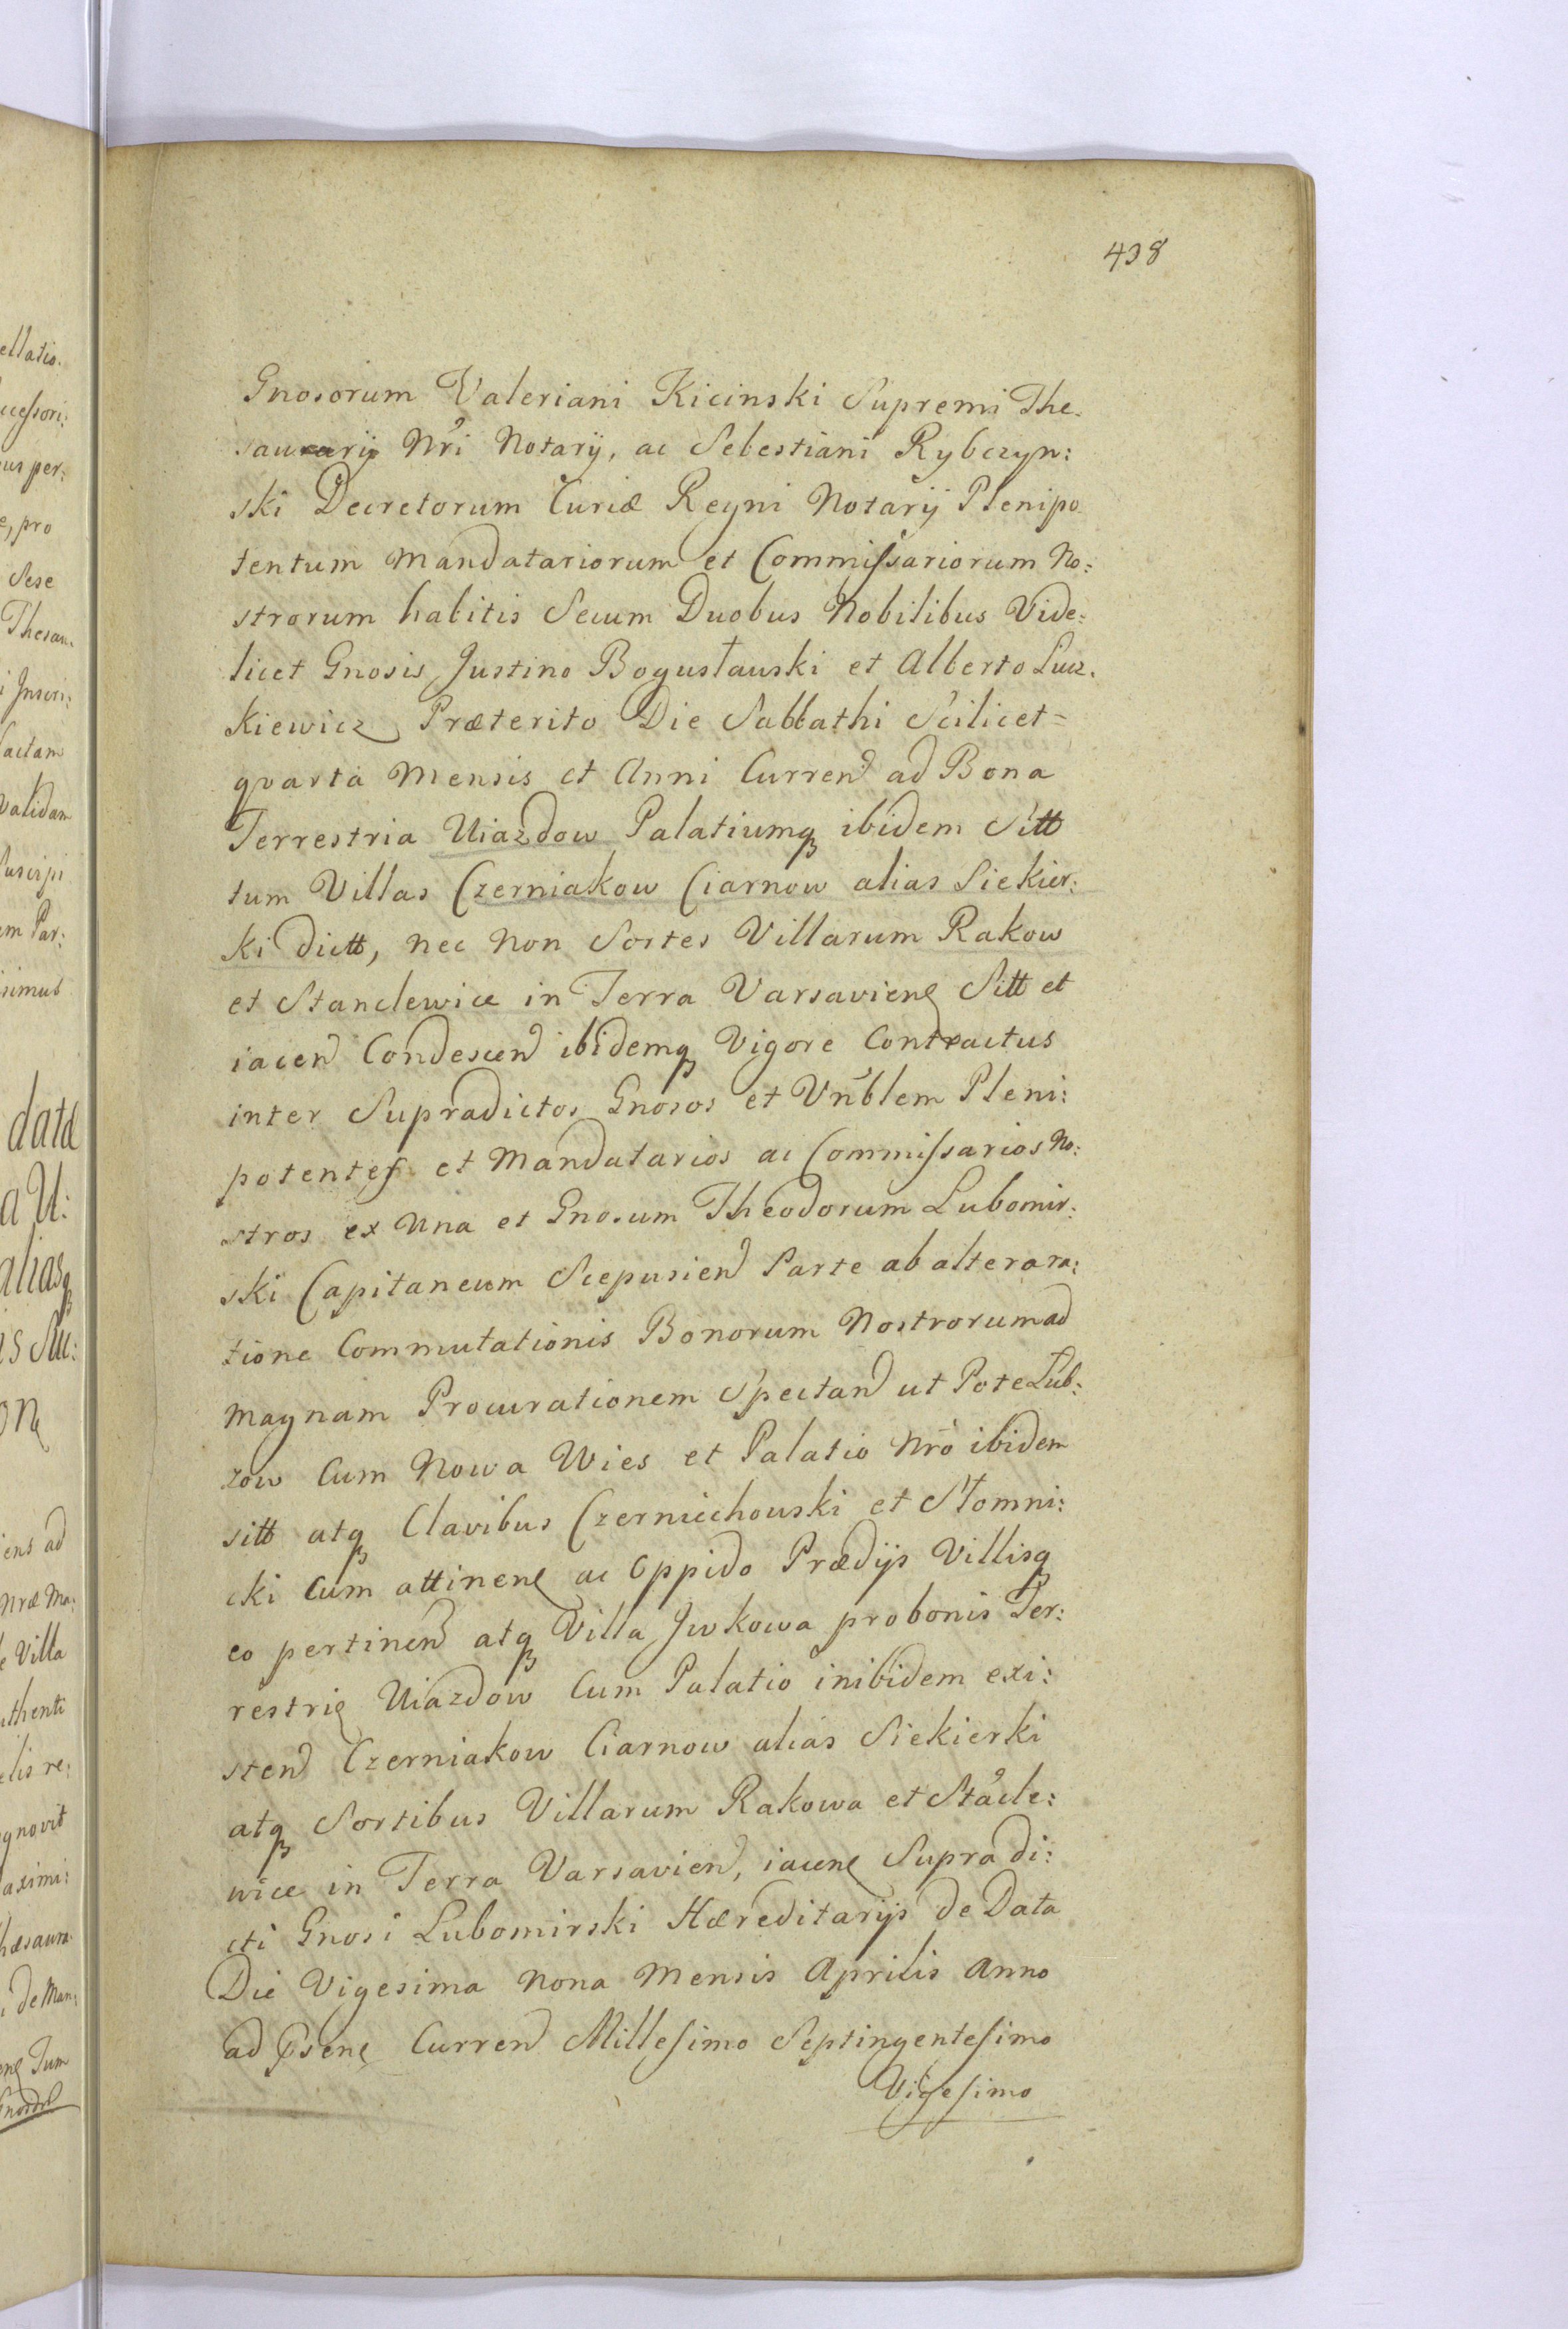 438
Gnosorum Valeriani Kicinski Supremi The-
saurarij Nri Notarij, ac Sebestiani Rybczyn:
ski Decretorum Curiæ Regni Notarij Plenipo
tentum Mandatariorum et Commissariorum No:
strorum habitis Secum Duobus Nobilibus Vide:
licet Gnosis Justino Bogusławski et Alberto Lucz.
Kiewicz Præterito Die Sabbathi Scilicet=
qvarta Mensis et Anni Curren ad Bona
Terrestria Uiazdow Palatiumq ibidem Sitt
tum Villas Czerniakow Ciarnow alias Siekier:
ki dictt, nec non Sortes Villarum Rakow
et Stanclewice in Terra Varsavien Sitt et
iacen Condescen ibidemq Vigore Contractus
inter Supradictos Gnosos et Vnblem Pleni:
potentes et Mandatarios ac Commissarios No:
stros ex Una et Gnosum Theodorum Lubomir:
ski Capitaneum Scepusien Parte ab altera ra:
tione Commutationis Bonorum Nostrorum ad
Magnam Procurationem Spectan ut Pote Łub:
zow Cum Nowa Wies et Palatio Nro ibidem
sitt atq Clavibus Czerniechowski et Słomni:
cki Cum attinen ac Oppido Prædijs Villisq
eo pertinen atq Villa Jwkowa pro bonis Ter:
restrie Uiazdow Cum Palatio inibidem exi:
sten Czerniakow Ciarnow alias Siekierki
atq Sortibus Villarum Rakowa et Stacle:
wice in Terra Varsavien, iacen Supra di:
cti Gnosi Lubomirski Hæreditarijs de Data
Die Vigesima Nona Mensis Aprilis Anno
ad Psen Curren Millesimo Septingentesimo
Vigesimo